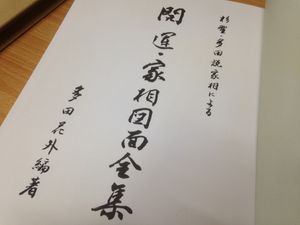 杉型・多田式家相による
開運・家相図面全集
多田花外編著